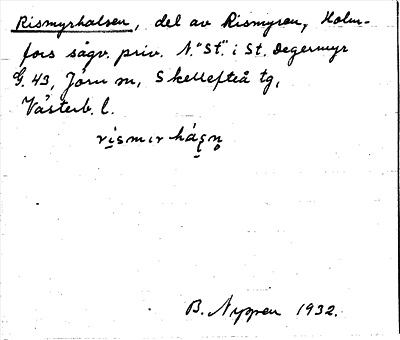 Rismyrhalsen, del av Rismyren, Holm-
fors sågv. priv. N. "St." i St. Degermyr
G. 43, Jörn sn, Skellefteå tg,
Västerb. l.
B. Nyman 1932.